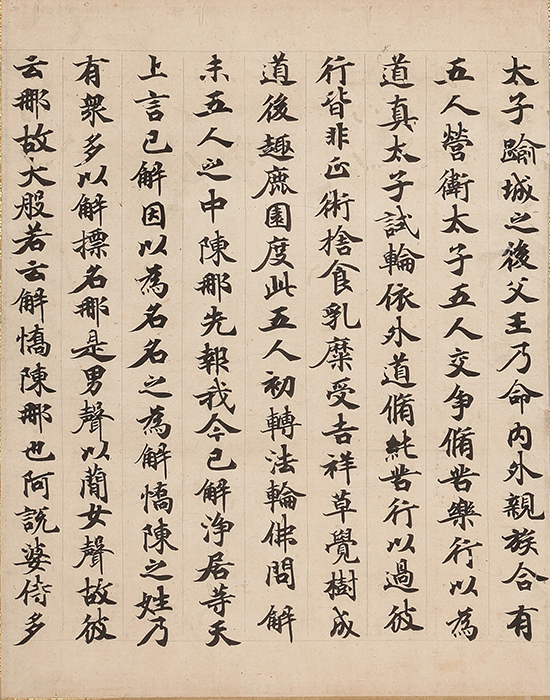 太子踰城之後父王乃命内外親族合有
五人營衛太子五人交争脩苦樂行以為
道真太子試輪依外道脩純苦行以過彼
行皆非正術捨食乳糜受吉祥草覺樹成
道後趣鹿園度此五人初轉法輪佛問解
未五人之中陳那先報我今已解浄居等天
上言已解因以為名名之為解憍陳之姓乃
有衆多以解摽名那是男聲以簡女聲故彼
云那故大般若云解憍陳那也阿説婆侍多